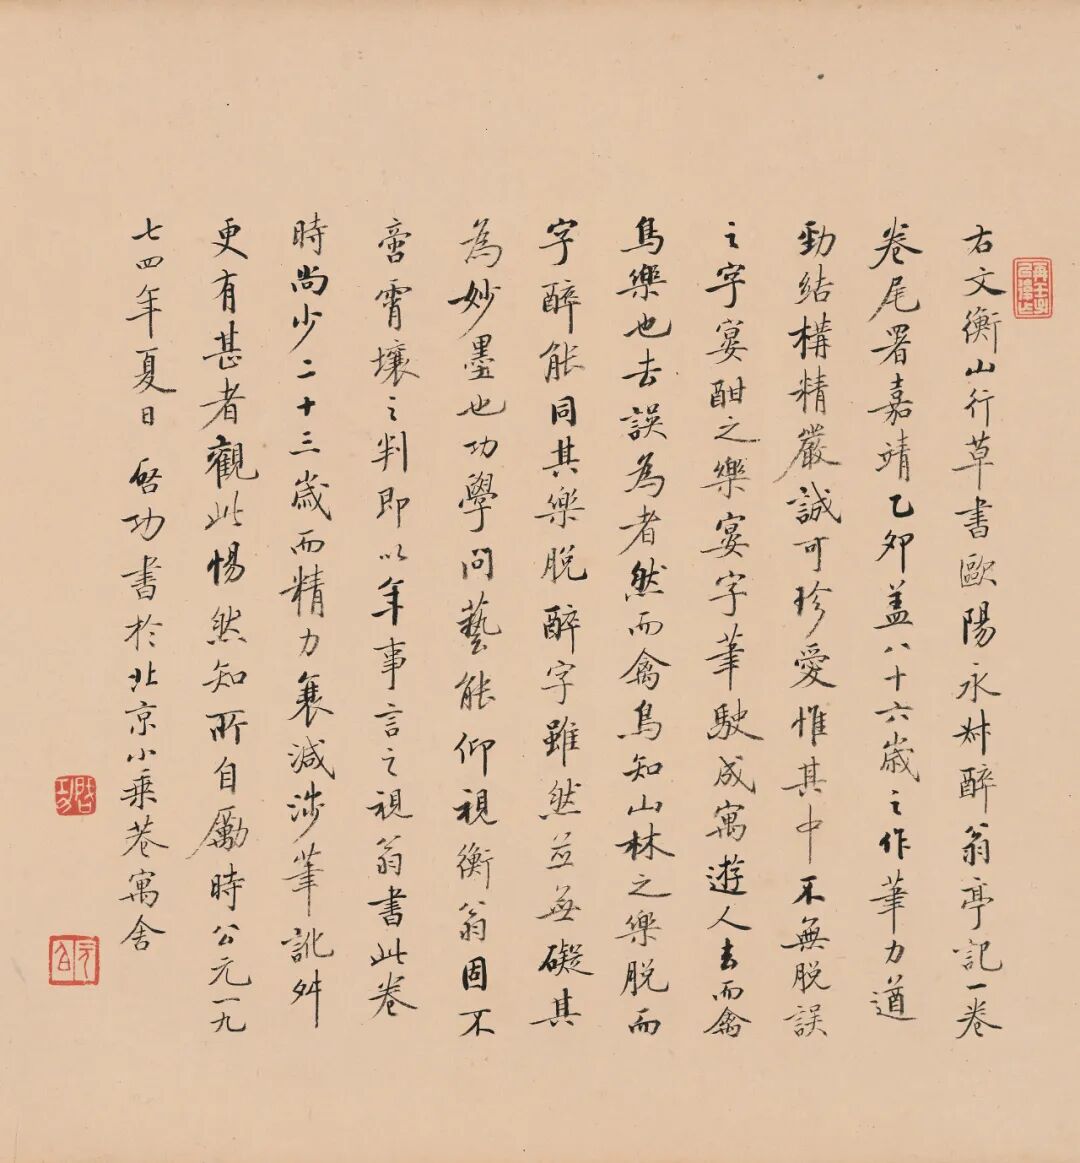 右文衡山行草書歐陽永叔醉翁亭記一卷
卷尾署嘉靖乙卯蓋八十六歲之作筆力遒
勁結構精嚴誠可珍愛惟其中不無脫誤
之字宴酣之樂宴字筆駛成寓遊人去而禽
鳥樂也去誤為者然而禽鳥知山林之樂脫而
字醉能同其樂脫醉字雖然並無礙其
為妙墨也功學問藝能仰視衡翁固不
啻霄壤之判即以年事言之視翁書此卷
時尚少二十三歲而精力衰減涉筆訛舛
更有甚者觀此惕然知所自勵時公元一九
七四年夏日 啟功書於北京小乘巷寓舍
啟功
元白